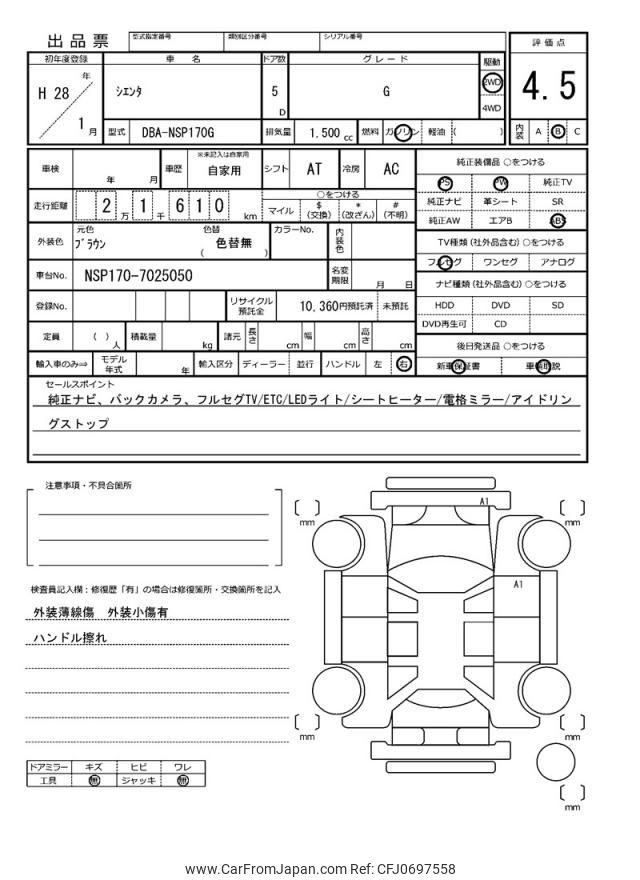 出品票 型式指定番号 類別区分番号 シリアル番号 評価点
初年度登録 車名 ドア数 グレード 駆動
H 28 年 1 月 シエンタ 5 D G 2WD 4WD 4.5
型式 DBA-NSP170G 排気量 1.500 cc 燃料 ガソリン 軽油 ( ) 内装 A B C
車検 年 月 車歴 ※未記入は自家用 自家用 シフト AT 冷房 AC 純正装備品 ○をつける
PS PW 純正TV
走行距離 2 万 1 千 6 1 0 km ○をつける マイル $ (交換) * (改ざん) # (不明) 純正ナビ 革シート SR
純正AW エアB ABS
外装色 元色 ブラウン 色替 ( 色替無 ) カラーNo. 内装色 TV種類 (社外品含む) ○をつける
フルセグ ワンセグ アナログ
車台No. NSP170-7025050 名変期限 月 日 ナビ種類 (社外品含む) ○をつける
登録No. リサイクル預託金 10,360 円預託済 未預託 HDD DVD SD
DVD再生可 CD
定員 ( ) 人 積載量 kg 諸元 長さ cm 幅 cm 高さ cm 後日発送品 ○をつける
輸入車のみ⇒ モデル年式 年 輸入区分 ディーラー 並行 ハンドル 左 右 新車保証書 車輌取説
セールスポイント
純正ナビ、バックカメラ、フルセグTV/ETC/LEDライト/シートヒーター/電格ミラー/アイドリン
グストップ
注意事項・不具合箇所
検査員記入欄：修復歴「有」の場合は修復箇所・交換箇所を記入
外装薄線傷 外装小傷有
ハンドル擦れ
ドアミラー キズ ヒビ ワレ
工具 無 ジャッキ 無
A1
A1
mm
mm
mm
mm
mm
www.CarFromJapan.com Ref: CFJ0697558